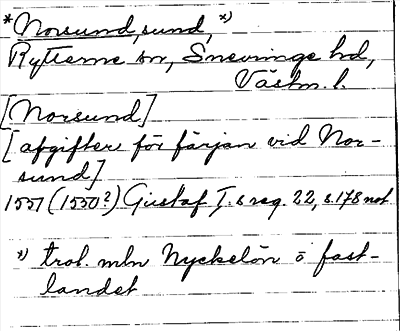 *Norsund, sund, *)
Rytterne sn, Snevringe hd,
Västm. l.
[Norsund]
[afgifter för färjan vid Nor-
sund]
1551 (1550?) Gustaf I.s reg. 22, s. 178 not
*) trol. mln Nyckelön o fast-
landet